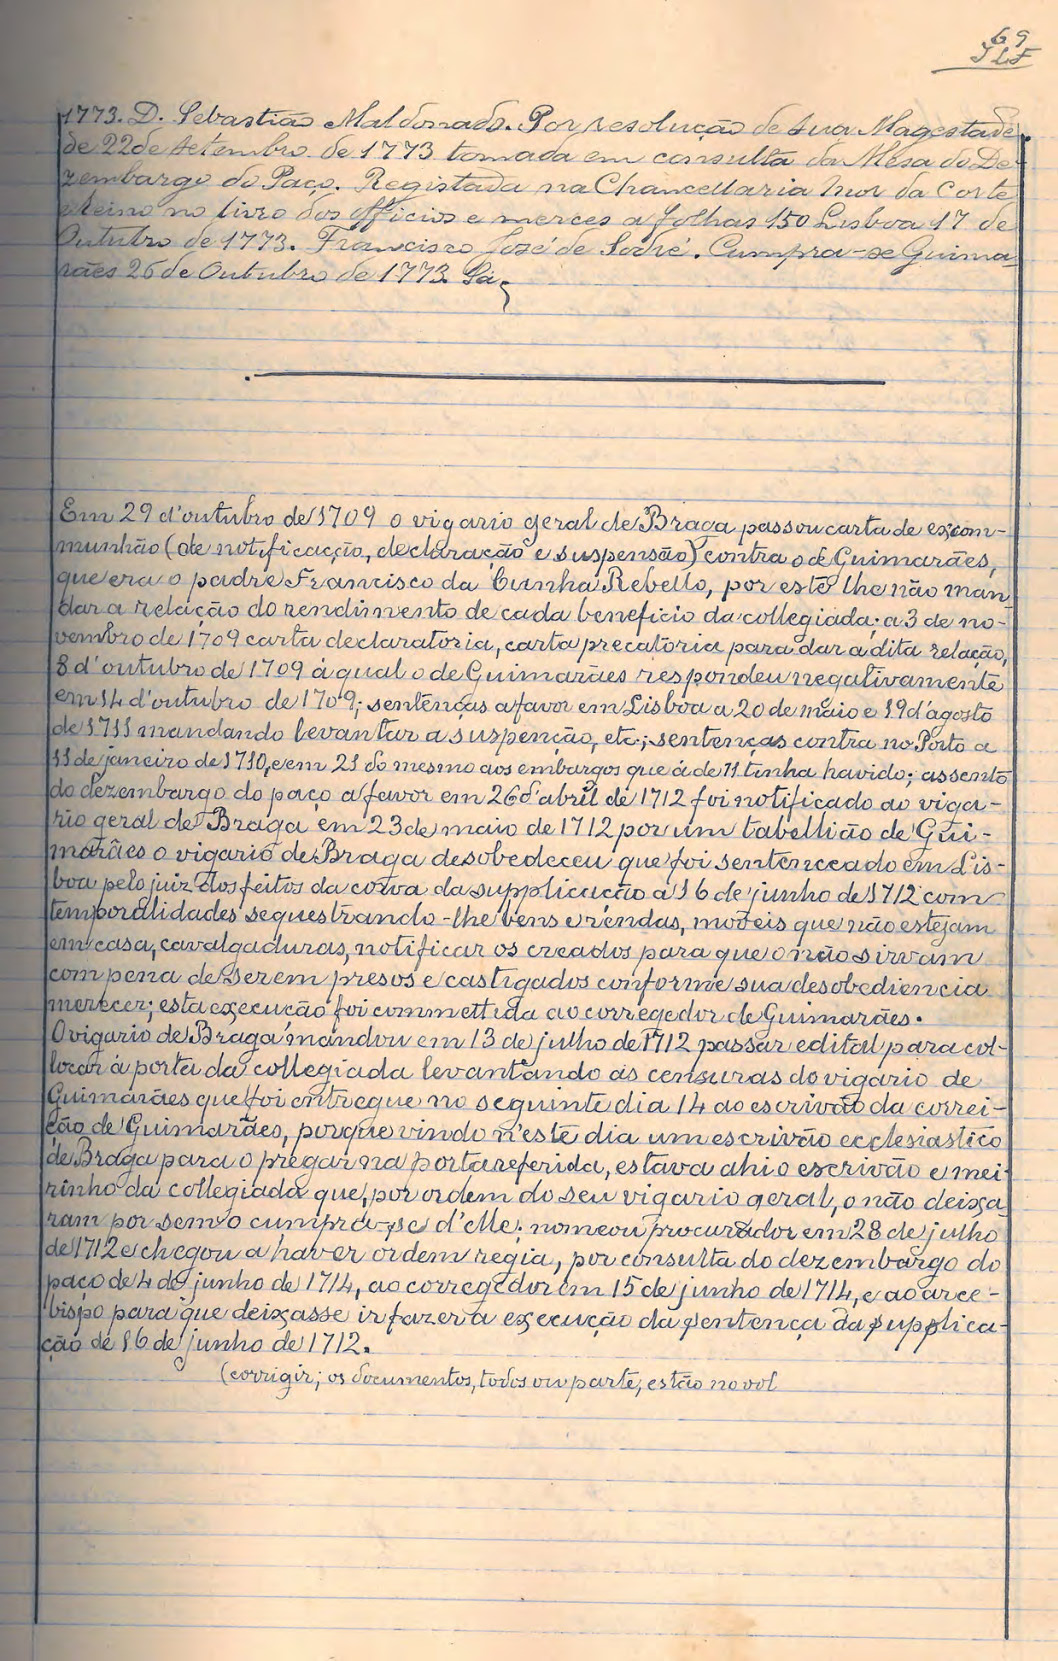 69
JLF
1773. D. Sebastião Maldonado. Por resolução de sua Magestade
de 22 de setembro de 1773 tomada em consulta da Mesa do De-
zembargo do Paço. Registada na Chancellaria mor da Corte
e Reino no livro dos officios e merces a folhas 150 Lisboa 17 de
Outubro de 1773. Francisco José de Sodré. Cumpra-se Guima-
rães 26 de Outubro de 1773. Sá
Em 29 d'outubro de 1709 o vigario geral de Braga passou carta de excom-
munhão (de notificacção, declaração e suspensão) contra o de Guimarães,
que era o padre Francisco da Cunha Rebello, por este lhe não man-
dar a relação do rendimento de cada beneficio da collegiada; a 3 de no-
vembro de 1709 carta declaratoria, carta precatoria para dar a dita relação,
8 d'outubro de 1709 á qual o de Guimarães respondeu negativamente
em 14 d'outubro de 1709; sentenças a favor em Lisboa a 20 de maio e 19 d'agosto
de 1711 mandando levantar a suspenção, etc.; sentenças contra no Porto a
11 de janeiro de 1710, e em 21 do mesmo aos embargos que á de 11 tinha havido; assento
do dezembargo do paço a favor em 26 d'abril de 1712 foi notificado ao viga-
rio geral de Braga em 23 de maio de 1712 por um tabellião de Gui-
marães o vigario de Braga desobedeceu que foi sentenceado em Lis-
boa pelo juiz dos feitos da coroa da supplicação a 16 de junho de 1712 com
temporalidades sequestrando-lhe bens e rendas, moveis que não estejam
em casa, cavalgaduras, notificar os creados para que o não sirvam
com pena de serem presos e castigados conforme sua desobediencia
merecer; esta execução foi commettida ao corregedor de Guimarães.
O vigario de Braga mandou em 13 de julho de 1712 passar edital para col-
locar á porta da collegiada levantando as censuras do vigario de
Guimarães que foi entregue no seguinte dia 14 ao escrivão da correi-
ção de Guimarães, porque vindo n'este dia um escrivão ecclesiastico
de Braga para o pregar na porta referida, estava ahi o escrivão e mei-
rinho da collegiada que, por ordem do seu vigario geral, o não deixa
ram por sem o cumpra-se d'elle; nomeou procurador em 28 de julho
de 1712 e chegou a haver ordem regia, por consulta do dezembargo do
paço de 4 de junho de 1714, ao corregedor em 15 de junho de 1714, e ao arce-
bispo para que deixasse ir fazer a execução da sentença da supplica-
ção de 16 de junho de 1712.
(corrigir; os documentos, todos ou parte, estão no vol